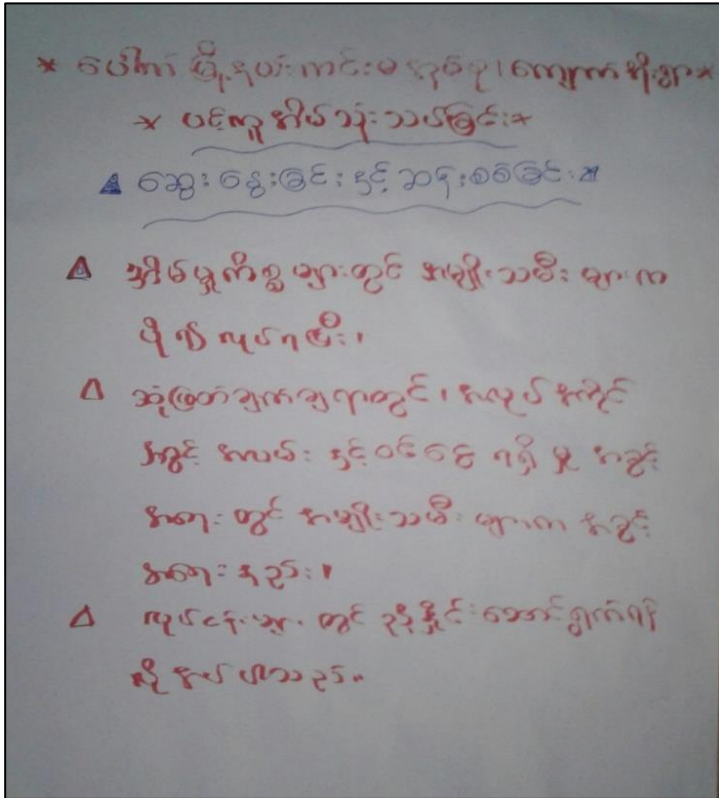 * ပေါက် မြို့နယ်၊ ကင်းမ အုပ်စု၊ ကျောက်စိုးရွာ *
* ပင့်ကူအိမ်သုံးသပ်ခြင်း *
ဆွေးနွေးခြင်းနှင့်ဆန်းစစ်ခြင်း
အိမ်မှုကိစ္စများတွင် အမျိုးသမီးများက
ပို၍ လုပ်ရပြီး၊
ဆုံးဖြတ်ချက်ချရာတွင်၊ အလုပ်အကိုင်
အခွင့် အလမ်း နှင့်ဝင်ငွေ ရရှိ မှု အခွင့်
အရေး တွင် အမျိုးသမီး များက အခွင့်
အရေး နည်း၊
လုပ်ငန်းများ တွင် ညှိနှိုင်းဆောင်ရွက်ရန်
လိုအပ်ပါသည်။